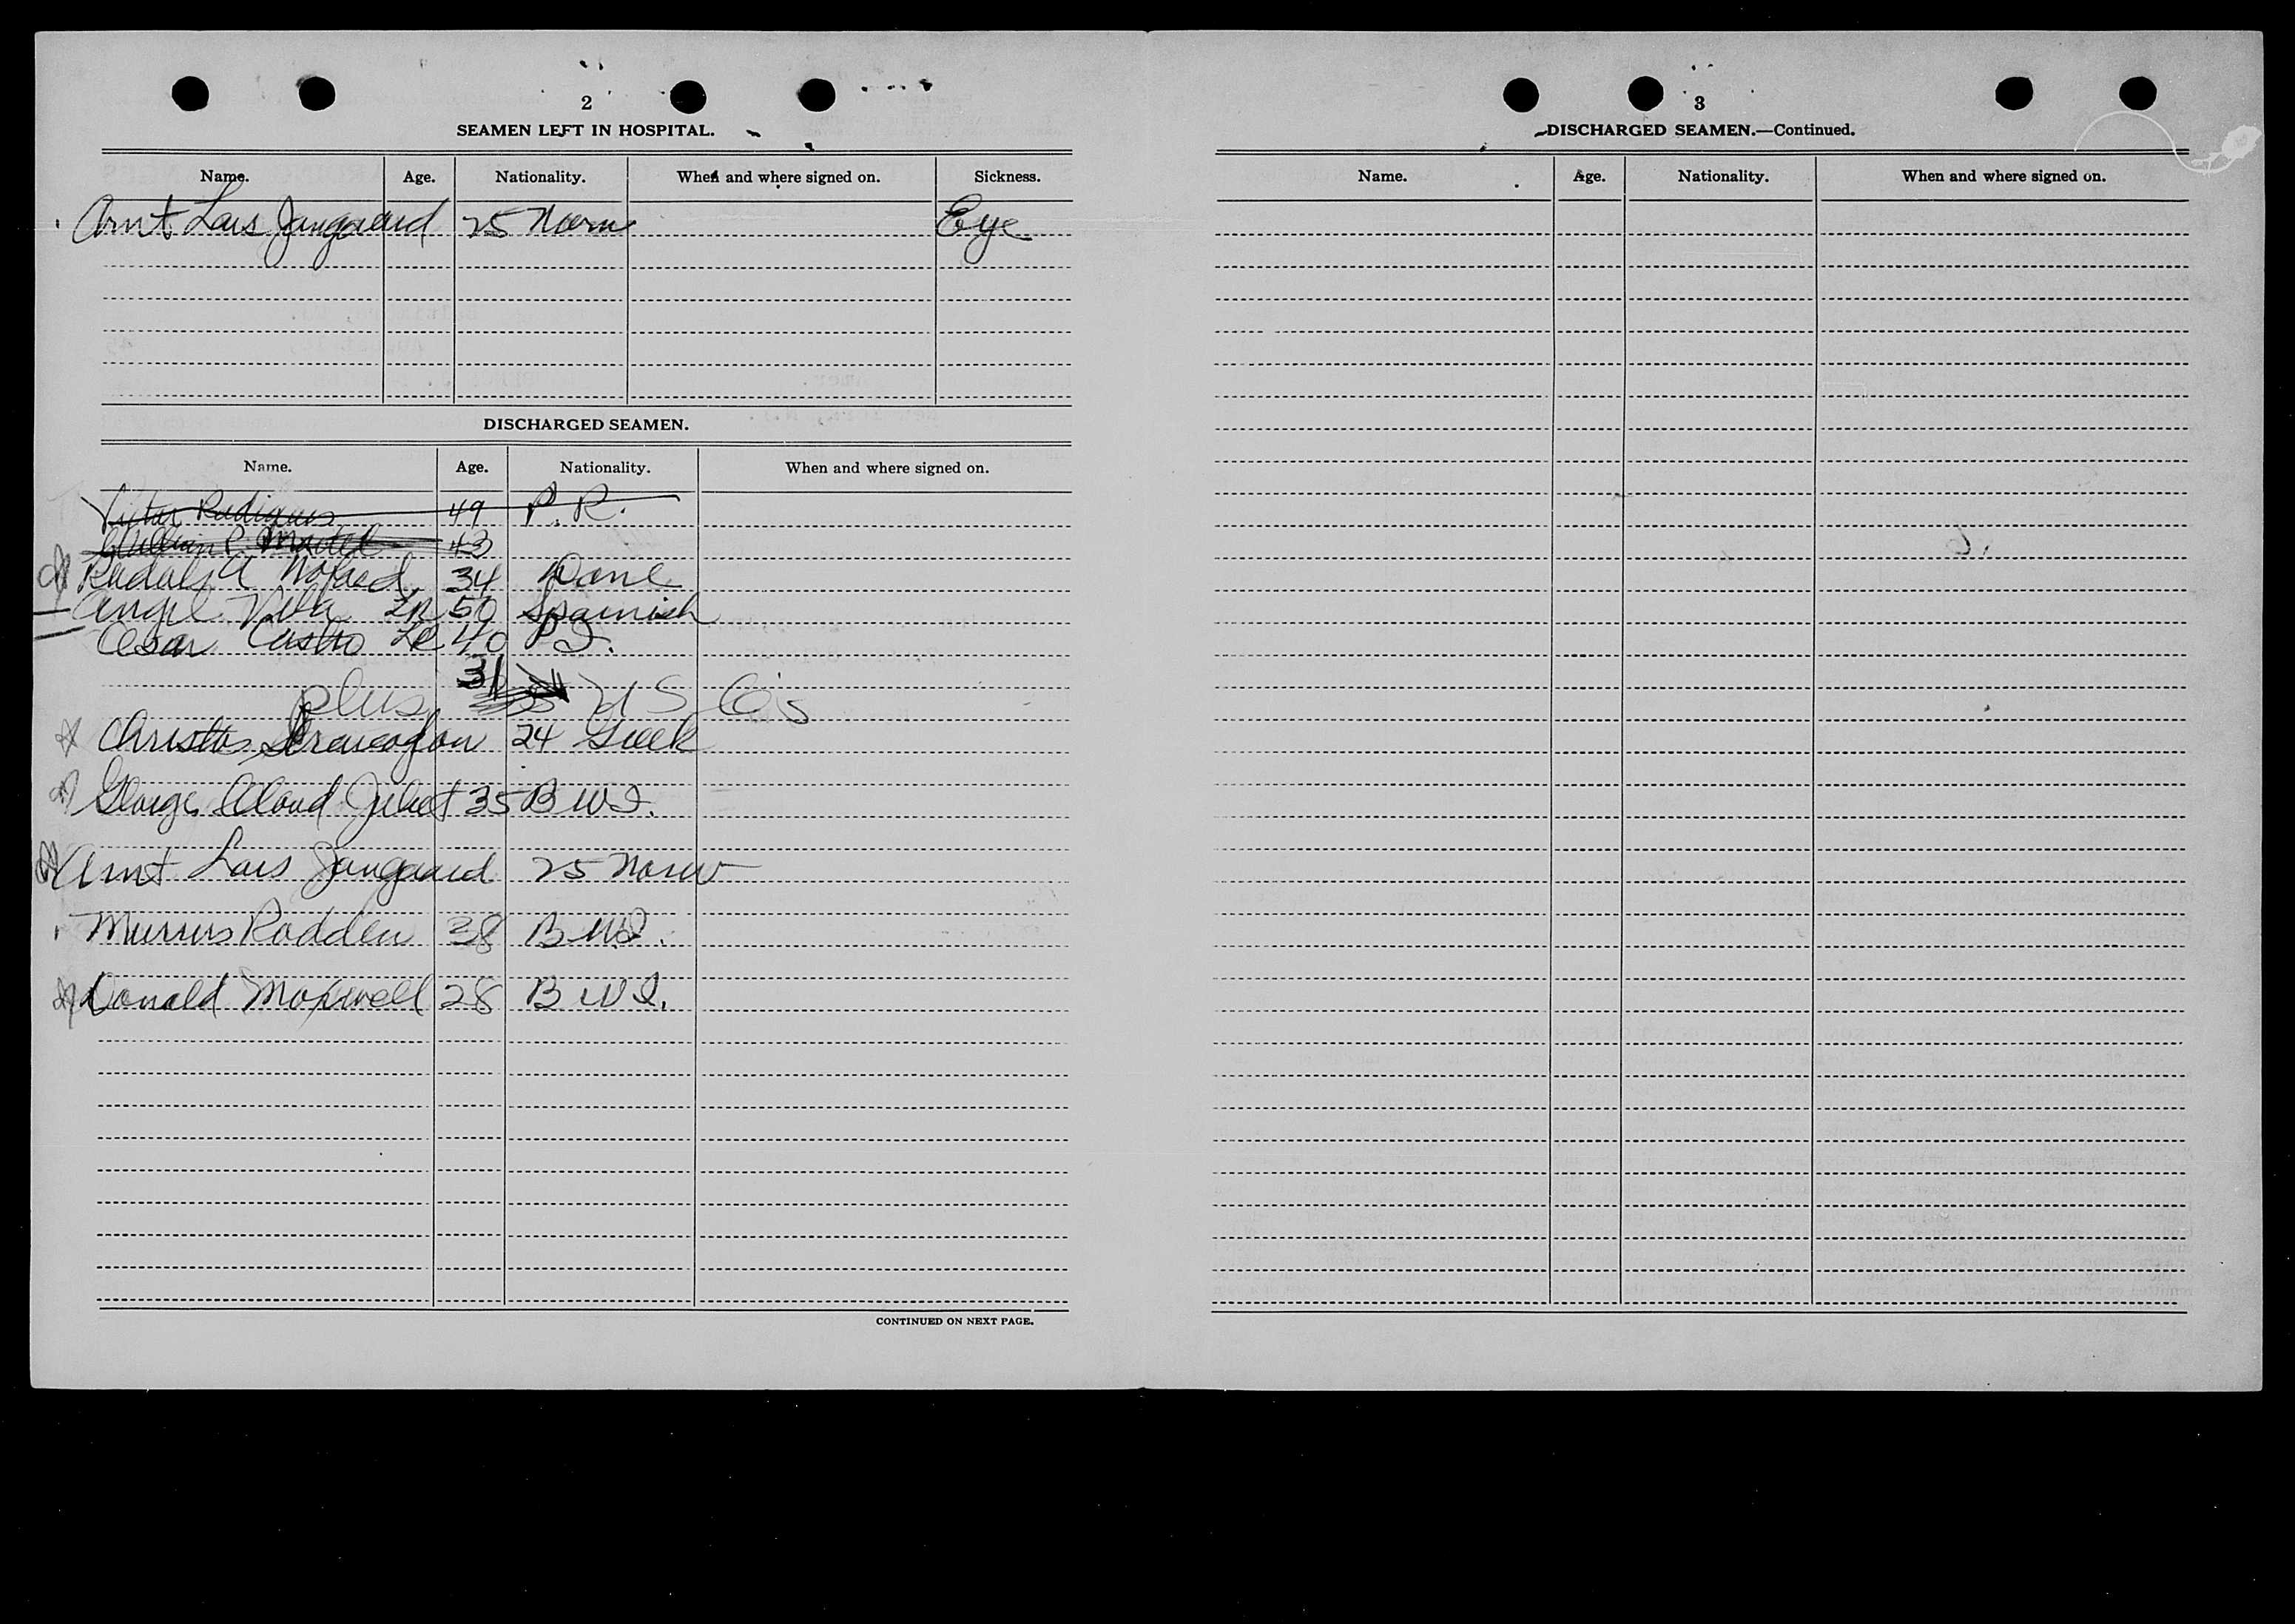 2
SEAMEN LEFT IN HOSPITAL.
Name. Age. Nationality. When and where signed on. Sickness.
Arnt Lars Jangaard 25 Norw Eye
DISCHARGED SEAMEN.
Name. Age. Nationality. When and where signed on.
Victor 49 P.R.
William P. 43
A 34 Dane
Angel Vila LR 50 Spanish
Cesar Castro LR 40 P I.
plus 31 US C's
Christos 24 Greek
George Cloud 35 B W I.
Arnt Lars Jangaard 25 Norw
Rodden 38 B W I.
Donald Maxwell 28 B W I.
CONTINUED ON NEXT PAGE.
3
DISCHARGED SEAMEN.—Continued.
Name. Age. Nationality. When and where signed on.